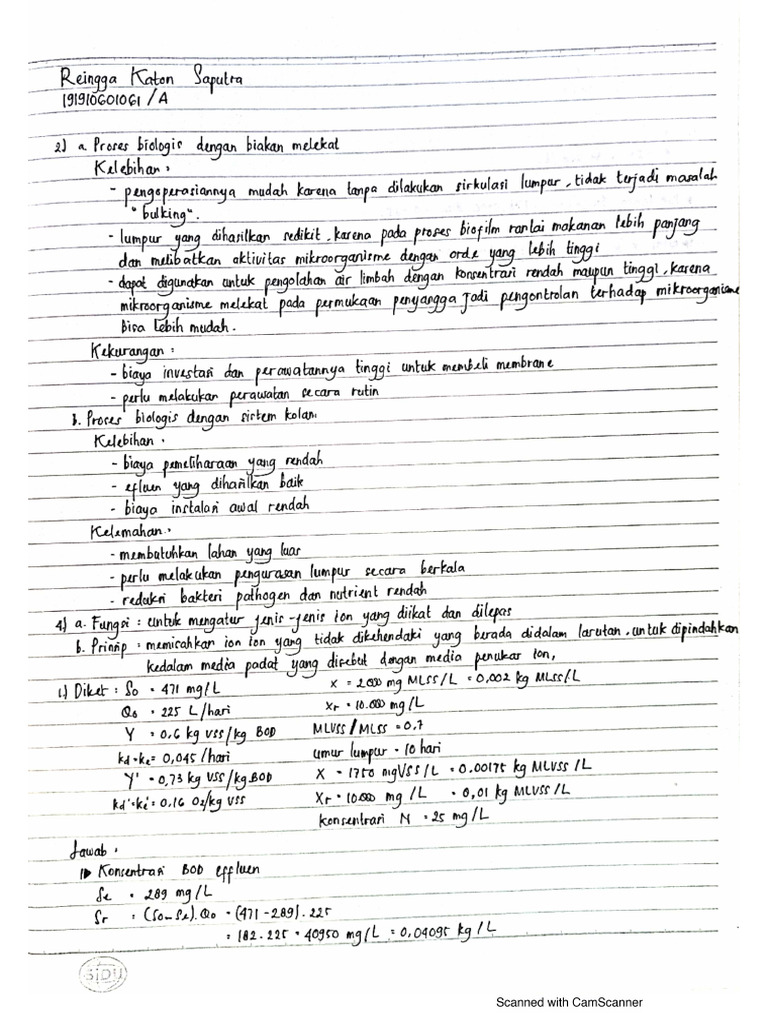 Reingga Katon Saputra
191910601061 / A
2) a. Proses biologis dengan biakan melekat
Kelebihan :
- pengoperasiannya mudah karena tanpa dilakukan sirkulasi lumpur, tidak terjadi masalah
"bulking".
- lumpur yang dihasilkan sedikit, karena pada proses biofilm rantai makanan lebih panjang
dan melibatkan aktivitas mikroorganisme dengan orde yang lebih tinggi
- dapat digunakan untuk pengolahan air limbah dengan konsentrasi rendah maupun tinggi, karena
mikroorganisme melekat pada permukaan penyangga jadi pengontrolan terhadap mikroorganisme
bisa lebih mudah.
Kekurangan :
- biaya investasi dan perawatannya tinggi untuk membeli membrane
- perlu melakukan perawatan secara rutin
b. Proses biologis dengan sistem kolam
Kelebihan :
- biaya pemeliharaan yang rendah
- efluen yang dihasilkan baik
- biaya instalasi awal rendah
Kelemahan :
- membutuhkan lahan yang luas
- perlu melakukan pengurasan lumpur secara berkala
- reduksi bakteri pathogen dan nutrient rendah
4) a. Fungsi : untuk mengatur jenis-jenis ion yang diikat dan dilepas
b. Prinsip : memisahkan ion ion yang tidak dikehendaki yang berada didalam larutan, untuk dipindahkan
kedalam media padat yang disebut dengan media penukar ion,
1) Diket : So = 471 mg/L X = 2000 mg MLSS/L = 0,002 kg MLSS/L
Qo = 225 L/hari Xr = 10.000 mg/L
Y = 0,6 kg VSS/kg BOD MLVSS/MLSS = 0.7
kd = ke = 0,045 /hari umur lumpur = 10 hari
Y' = 0,73 kg VSS/kg BOD X = 1750 mgVSS/L = 0.00175 kg MLVSS/L
kd' = ke' = 0.16 O2/kg VSS Xr = 10000 mg/L = 0,01 kg MLVSS/L
konsentrasi N = 25 mg/L
Jawab :
1) Konsentrasi BOD effluen
Se = 289 mg/L
Sr = (So-Se).Qo = (471-289).225
= 182.225 = 40950 mg/L = 0,04095 kg/L
SIDU
Scanned with CamScanner